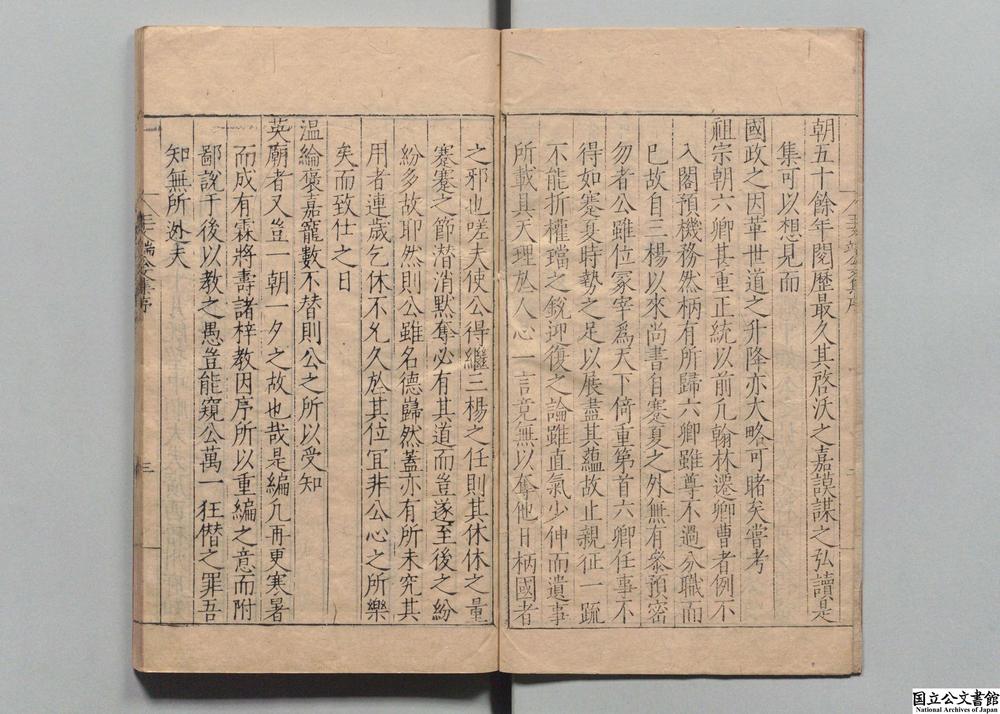 朝五十餘年閱歷最久其啓沃之嘉謨謀之弘讀是
集可以想見而
國政之因革世道之升降亦大略可睹矣嘗考
祖宗朝六卿甚重正統以前凢翰林遷卿曹者例不
入閣預機務然柄有所歸六卿雖尊不過分職而
已故自三楊以來尚書自蹇夏之外無有叅預密
勿者公雖位冢宰爲天下倚重第首六卿任事不
得如蹇夏時勢之足以展盡其蘊故止親征一䟽
不能折權璫之銳迎復之論雖直氣少伸而遺事
所載具天理於人心一言竟無以奪他日柄國者
之邪也嗟夫使公得繼三楊之任則其休休之量
蹇蹇之節潜消黙奪必有其道而豈遂至後之紛
紛多故耶然則公雖名德巋然蓋亦有所未究其
用者連歲乞休不乆久於其位冝非公心之所樂
矣而致仕之日
温綸褒嘉寵數不替則公之所以受知
英廟者又豈一朝一夕之故也哉是編凢再更寒暑
而成有霖將壽諸梓敎因序所以重編之意而附
鄙說于後以敎之愚豈能窺公萬一狂僣之罪吾
知無所逃夫
三
国立公文書館
National Archives of Japan